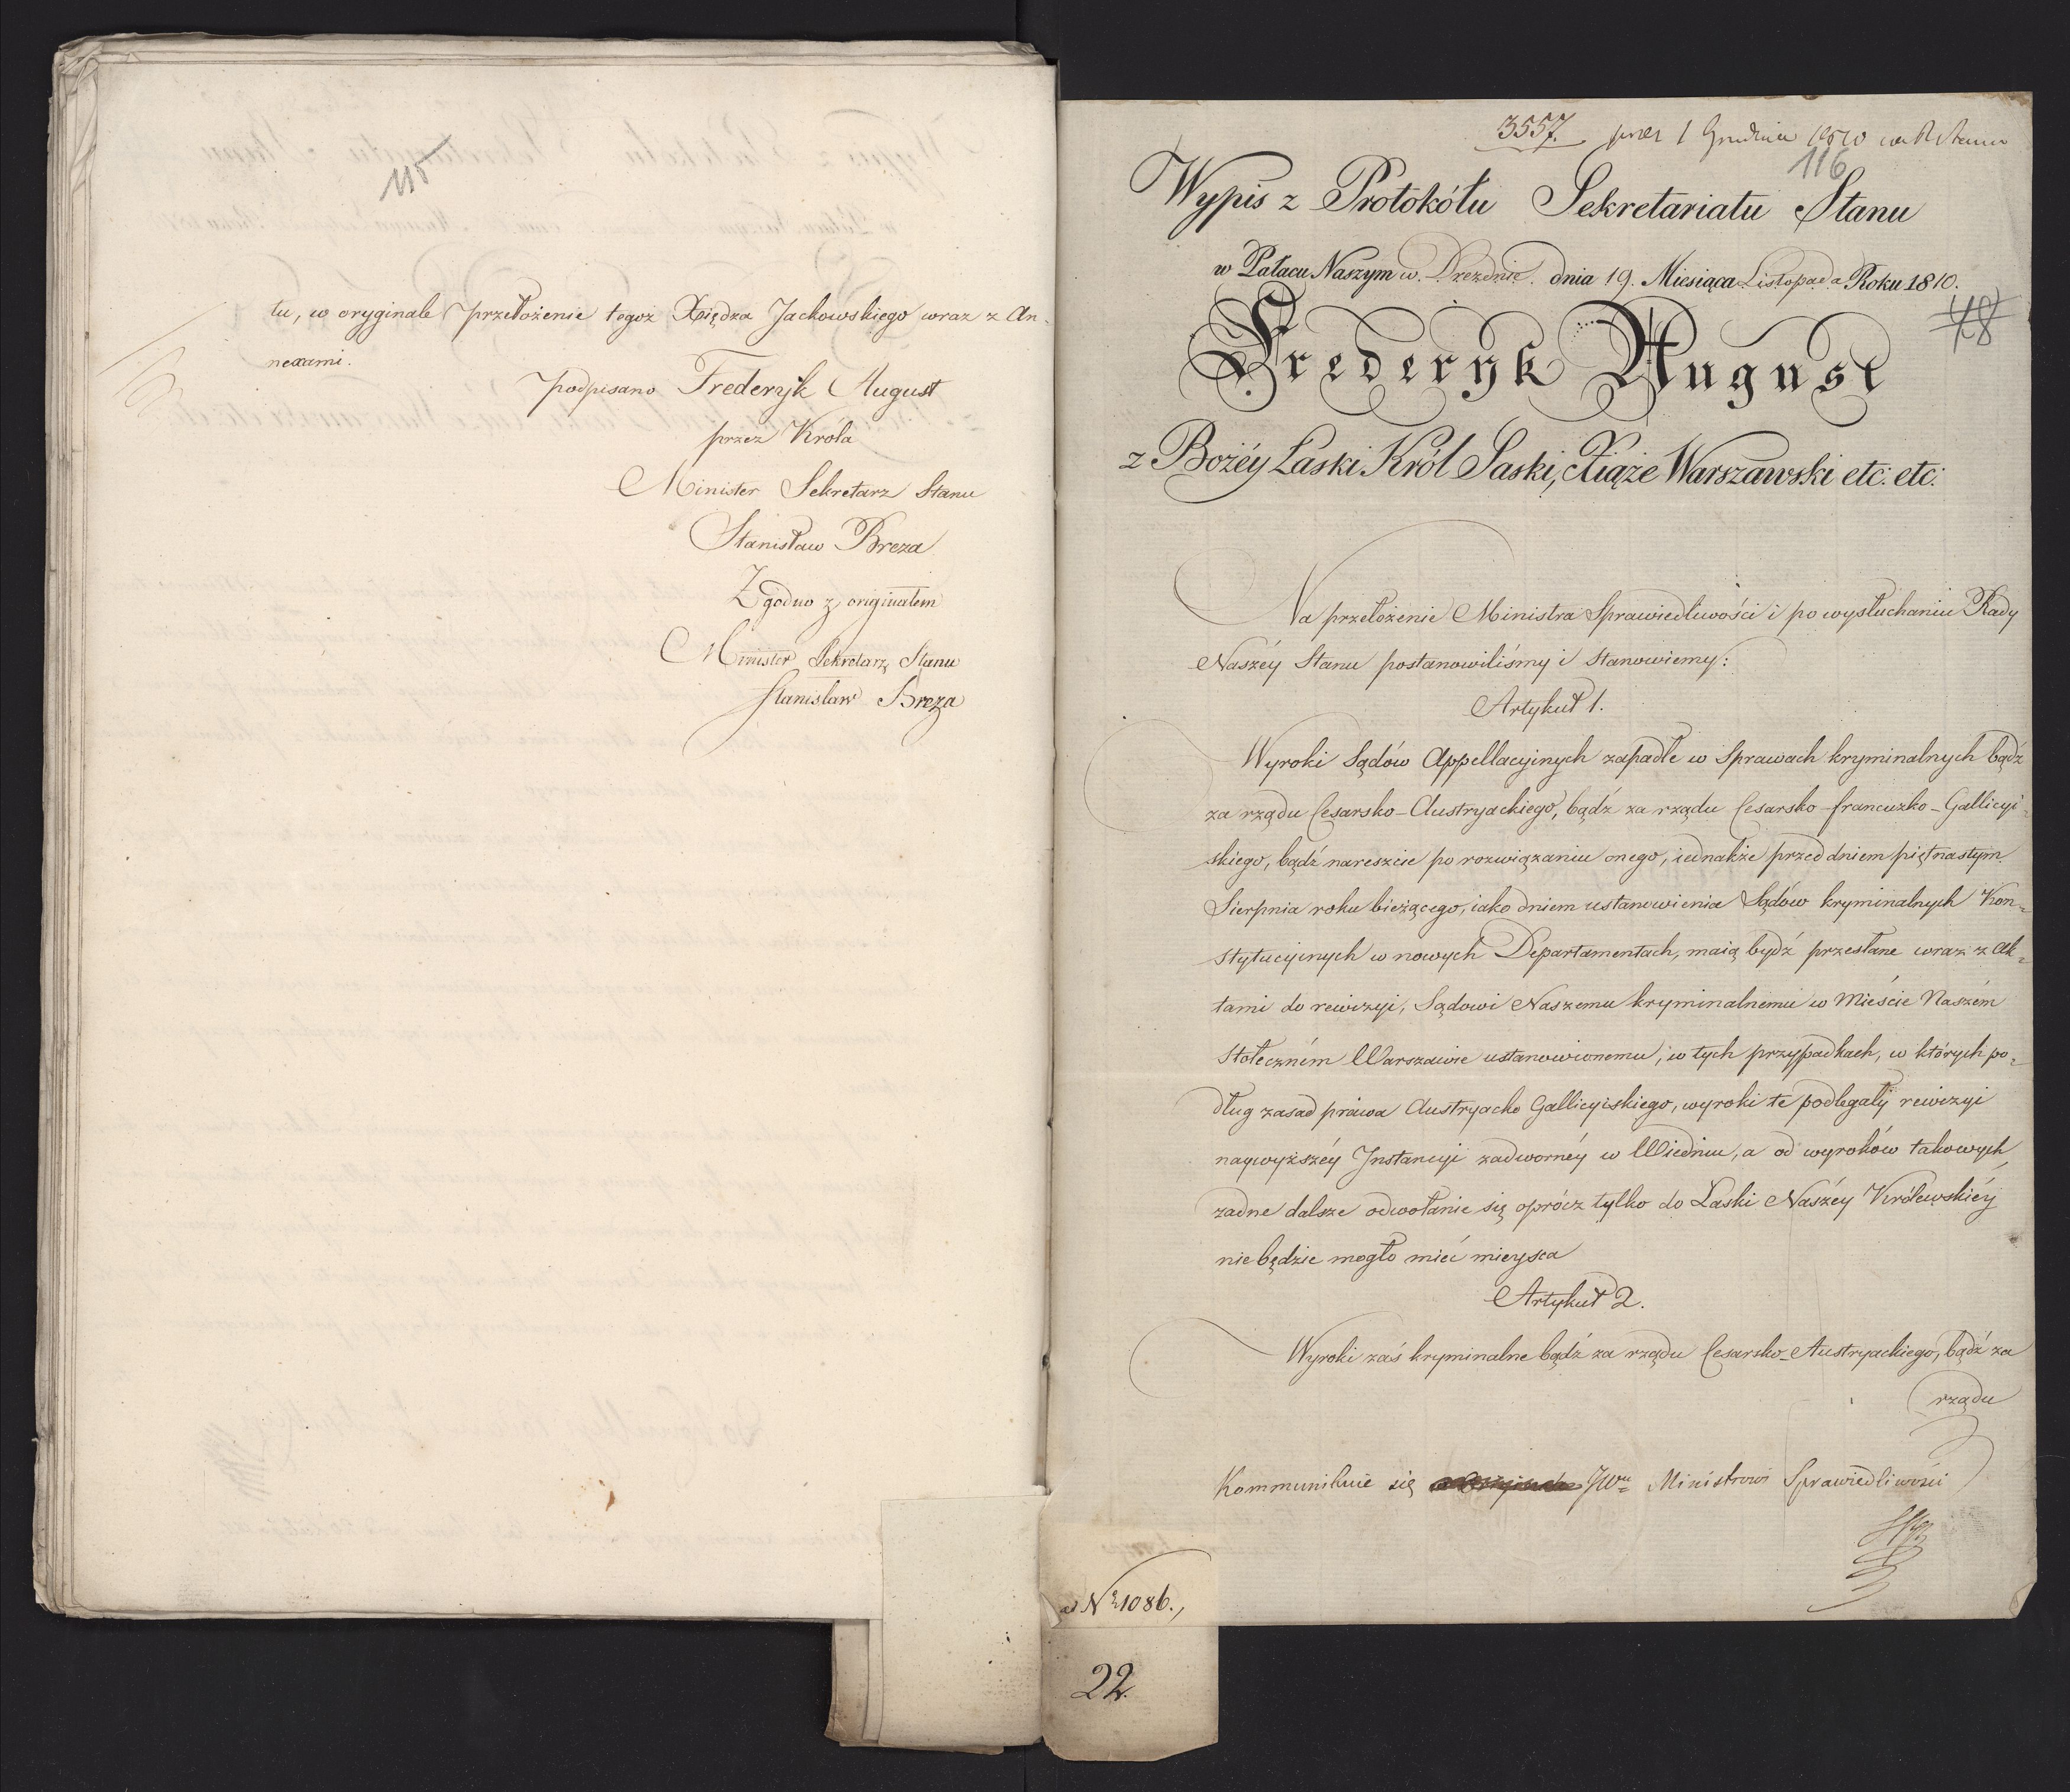 115
tu, w oryginale przełożenie tegoż Xiędza Jackowskiego wraz z An-
nexami.
podpisano Frederyk August
przez Króla
Minister Sekretarz Stanu
Stanisław Breza
Zgodno z originałem
Minister Sekretarz Stanu
Stanisław Breza
3557. prez 1 Grudnia 1810
116
Wypis z Protokółu Sekretariatu Stanu
w Pałacu Naszym w Dreznie dnia 19. Miesiąca Listopada Roku 1810.
48
Frederyk August
z Bożéy Łaski Król Saski, Xiąże Warszawski etc: etc:
Na przełożenie Ministra Sprawiedliwości i po wysłuchaniu Rady
Naszéy Stanu postanowiliśmy i stanowiemy:
Artykuł 1.
Wyroki Sądów Appellacyinych zapadłe w Sprawach kryminalnych bądź
za rządu Cesarsko-Austryackiego, bądź za rządu Cesarsko-francuzko-Gallicyi-
skiego, bądź nareszcie po rozwiązaniu onego, iednakże przed dniem piętnastym
Sierpnia roku bieżącego, iako dniem ustanowienia Sądów kryminalnych Kon=
stytucyinych w nowych Departamentach, maią bydź przesłane wraz z Ak=
tami do rewizyi, Sądowi Naszemu kryminalnemu w Mieście Naszém
Stołeczném Warszawie ustanowionemu, w tych przypadkach, w których po=
dług zasad prawa Austryacko Gallicyiskiego, wyroki te podlegały rewizyi
naywyższéy Instancyi zadwornéy w Wiedniu, a od wyroków takowych
żadne dalsze odwołanie się oprócz tylko do Łaski Naszéy Królewskiéy
nie będzie mogło mieć mieysca
Artykuł 2.
Wyroki zaś kryminalne bądź za rządu Cesarsko-Austryackiego, bądź za
rządu
Kommunikuie się JWu= Ministrowi Sprawiedliwości
ad Nr 1086.,
22.